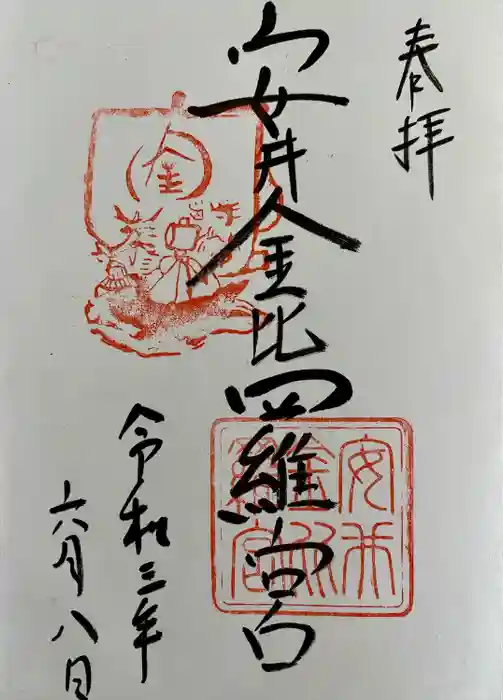 奉拝
安井金比羅宮
令和三年
六月八日
金
安井
金比
羅宮